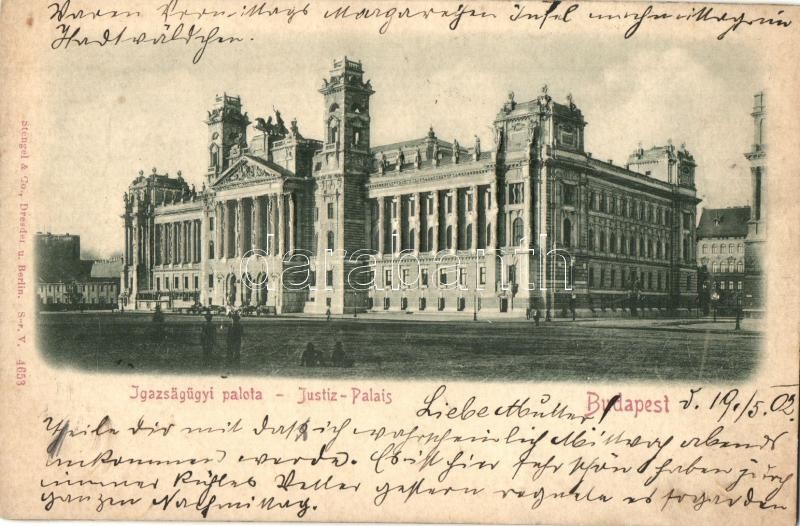 Waren Vormittags Margarethen Insel nachmittags im
Stadtwäldchen.
Stengel & Co., Dresden u. Berlin. Ser. V. 4653
darabanth.com
Igazságügyi palota - Justiz-Palais
Budapest
d. 19./5. 02
Liebe Mutter!
Theile dir mit dass ich wahrscheinlich Mittwoch abends
ankommen werde. Es ist hier sehr schön haben zwar
immer kühles Wetter gestern regnete es sogar den
ganzen Nachmittag.